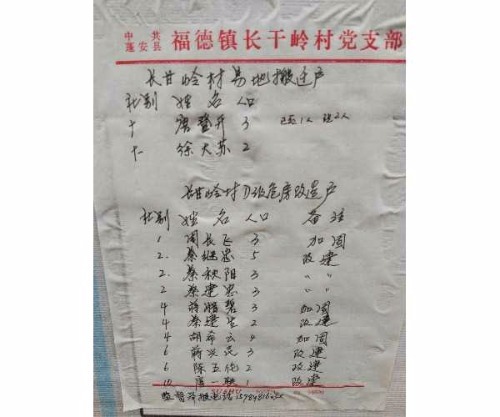 中共蓬安县 福德镇长干岭村党支部
长甘岭村易地搬迁户
社别 姓名 人口
十 唐登升 3
十一 徐大苏 2
长甘岭村D级危房改造户
社别 姓名 人口 备注
1 周长飞 3 加固
2. 蔡继忠 5 改建
2. 蔡秋阳 3 〃 〃
2 蔡建忠 3
4 蒋腊碧 3 加固
4 蔡建生 2 改建
4 胡希云 4 加固
6 蒋兴 3 改建
6 陈五 2 改建
10 唐一 1 改建
监督举报电话